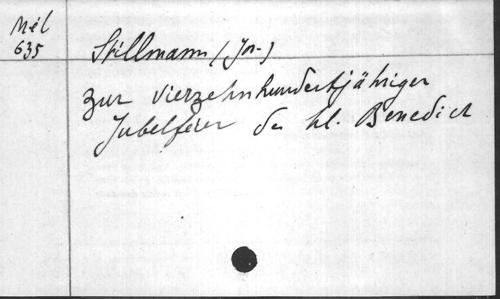 Mél
635
Stillmann (Jos.)
Zur vierzehnhundertjähriger
Jubelfeier des hl. Benedict